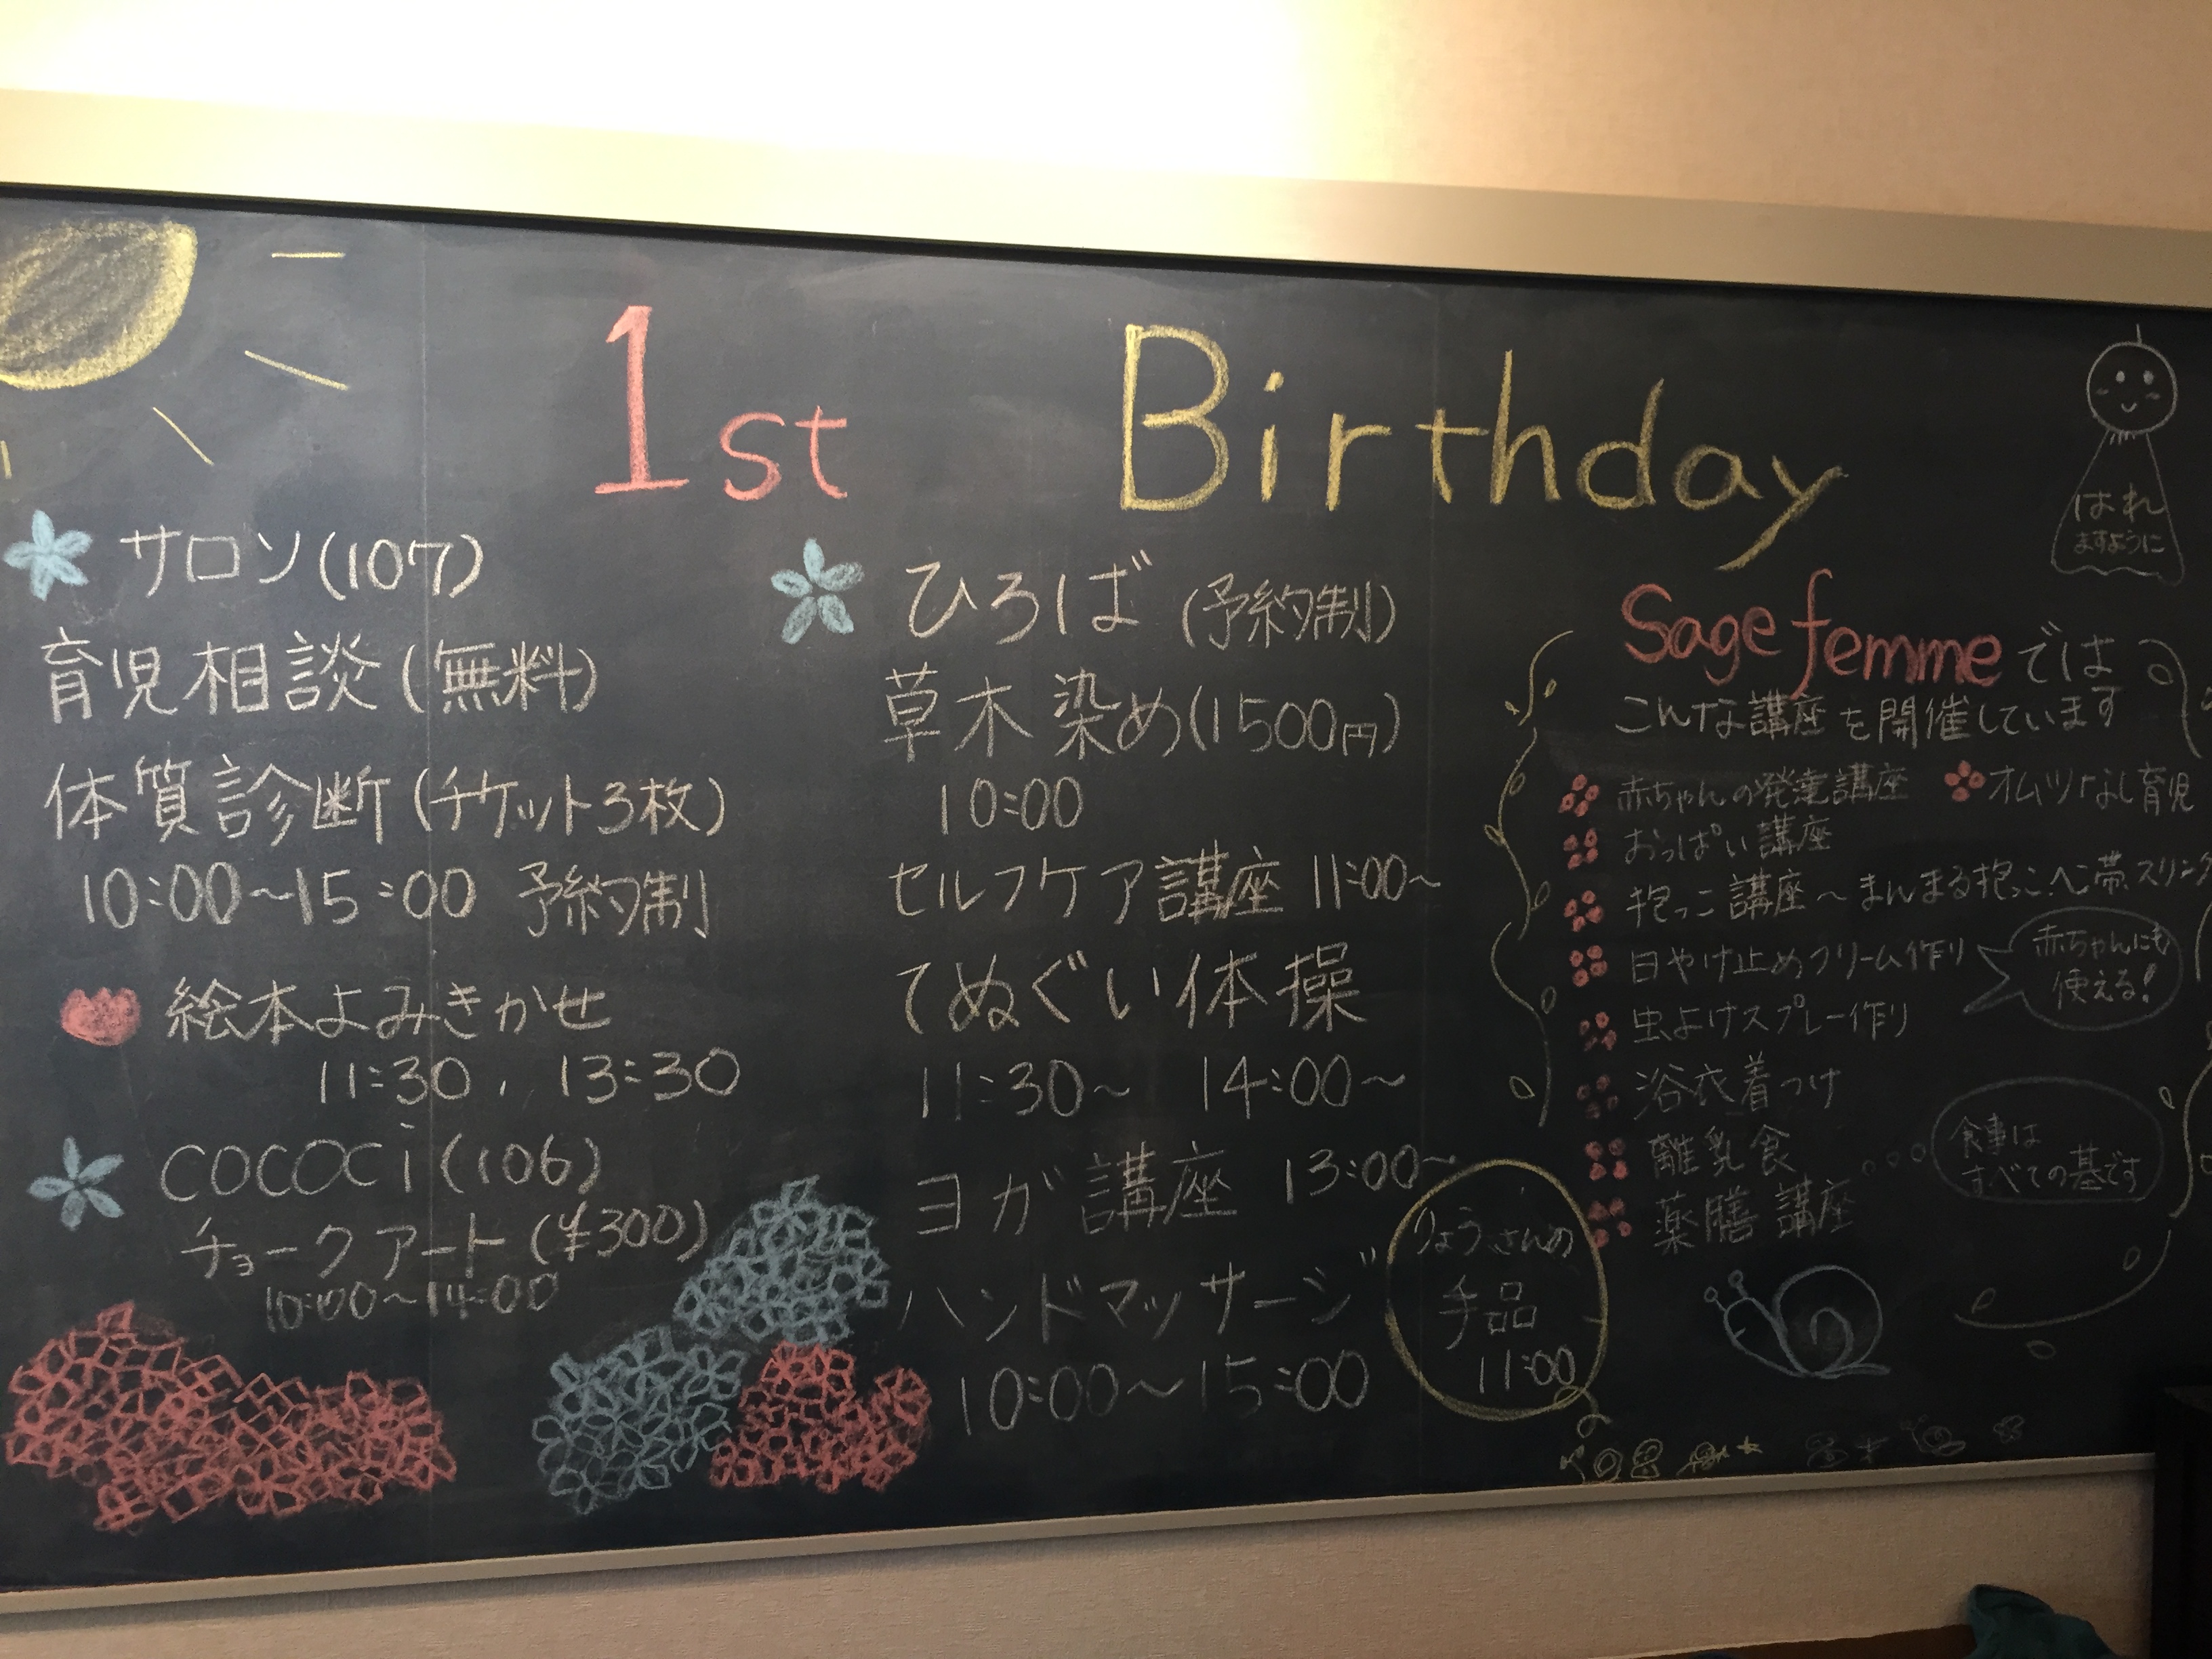 1st Birthday
はれ
ますように
サロン(107)
育児相談(無料)
体質診断(チケット3枚)
10:00~15:00 予約制
絵本よみきかせ
11:30, 13:30
cococi(106)
チョークアート(¥300)
10:00~14:00
ひろば(予約制)
草木染め(1500円)
10:00
セルフケア講座 11:00~
てぬぐい体操
11:30~ 14:00~
ヨガ講座 13:00~
ハンドマッサージ
10:00~15:00
りょうさんの
手品
11:00
Sage femmeでは
こんな講座を開催しています
赤ちゃんの発達講座 オムツなし育児
おっぱい講座
抱っこ講座~まんまる抱っこ、へこ帯、スリング
日やけ止めクリーム作り
赤ちゃんにも
使える!
虫よけスプレー作り
浴衣着つけ
離乳食
食事は
すべての基です
薬膳講座